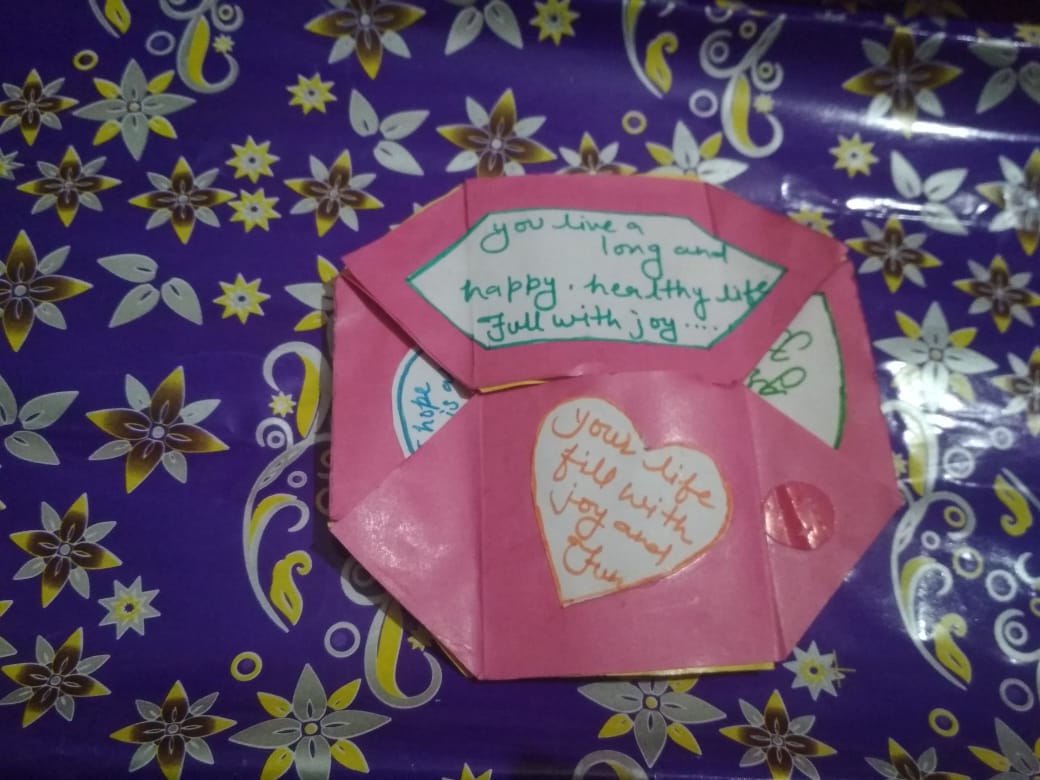 you live a
long and
happy. healthy life
Full with joy....
hope
is a
Your life
fill with
joy and
Fun